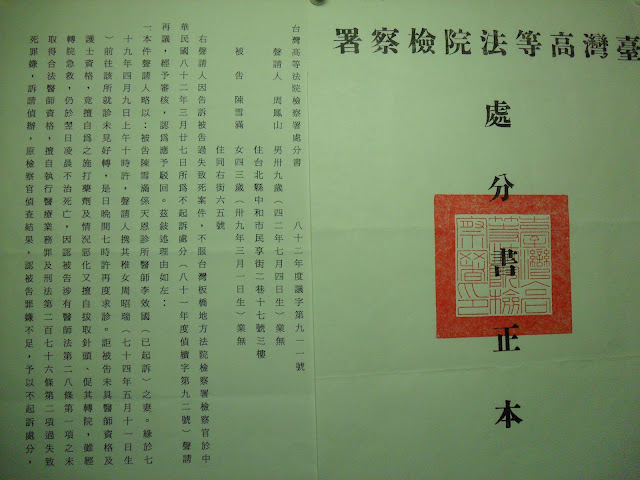 臺灣高等法院檢察署
處分書正本
台灣高等法院檢察署處分書 八十二年度議字第九一一號
聲請人 周鳳山 男卅九歲（四二年七月四日生）業無
住台北縣中和市民享街二巷十七號三樓
被告 陳雪滿 女四三歲（卅九年三月一日生）業無
住同右街六五號
右聲請人因告訴被告過失致死案件，不服台灣板橋地方法院檢察署檢察官於中
華民國八十二年三月廿七日所為不起訴處分（八十一年度偵續字第九二號）聲請
再議，經予審核，認爲應予駁回。茲敍述理由如左：
一本件聲請人略以：被告陳雪滿係天恩診所醫師李效國（已起訴）之妻。緣於七
十九年四月九日上午十時許，聲請人攜其稚女周昭瑞（七十四年五月十一日生
）前往該所就診未見好轉，是日晚間七時許再度求診。詎被告未具醫師資格及
護士資格，竟擅自為之施打藥劑及情況惡化又擅自拔取針頭、促其轉院，雖經
轉院急救，仍於翌日凌晨不治死亡，因認被告涉有醫師法第二八條第一項之未
取得合法醫師資格，擅自執行醫療業務罪及刑法第二百七十六條第二項過失致
死罪嫌，訴請偵辦，原檢察官偵查結果，認被告罪嫌不足，予以不起訴處分，